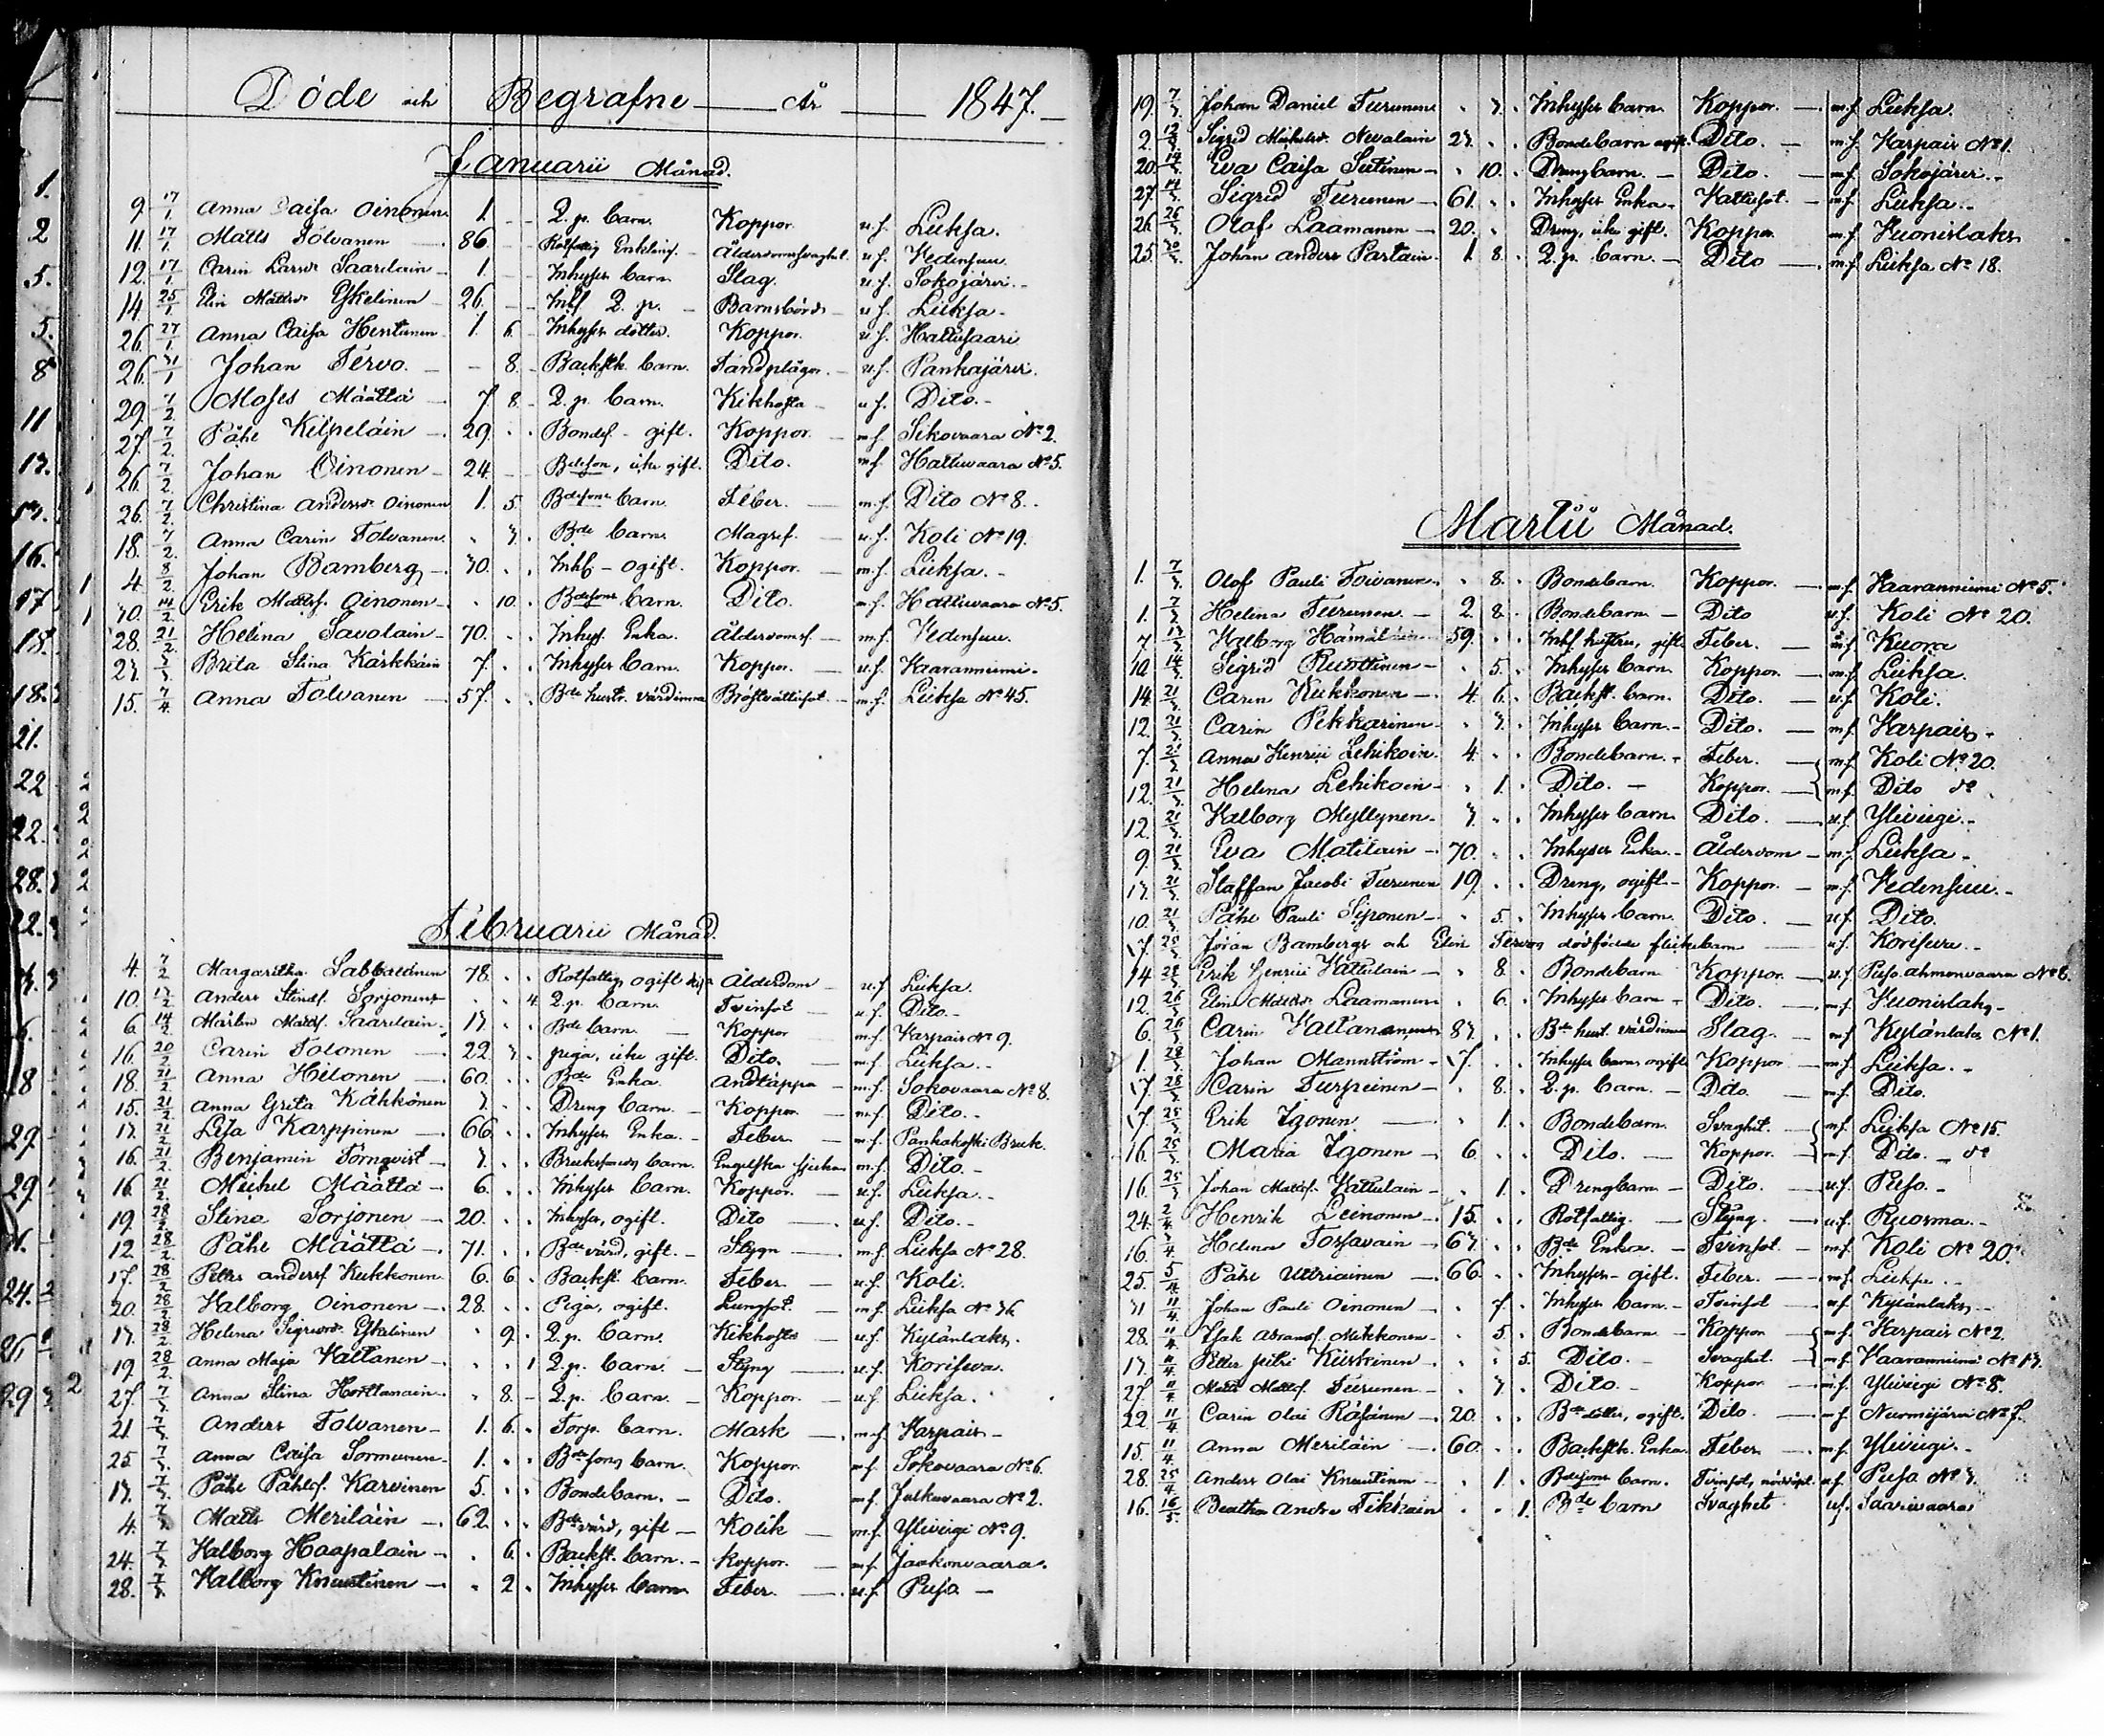 Döde och Begrafne År 1847.
Januarii Månad.
9. 17/1. Anna Caisa Oinonen 1. Q. p. barn. Koppor. u.f. Lieksa.
11. 17/1. Matts Tolvanen 86. Rotfattig Enkling Ålderdomssvaghet. u.f. Vedensuu.
12. 17/1. Carin Larsdr Saarelain 1. Inhyses barn. Slag. u.f. Sokojärvi.
14. 25/1. Elin Mattsdr Eskelinen 26. Inh. Q. p. Barnsbörd u.f. Lieksa
26. 27/1. Anna Caisa Hentunen 1. 6. Inhyses dotter. Koppor. u.f. Hattusaari
26. 31/1 Johan Tervo. 8. Backstk. barn. Tandplågor. u.f. Pankajärvi.
29. 7/2. Moses Määttä 7 8 Q. p. barn. Kikhosta u.f. Dito.
27. 7/2. Påhl Kilpeläin 29. Bondes. gift. Koppor. m.f. Sikovaara No 2.
26. 7/2. Johan Oinonen 24. Bdeson, icke gift. Dito. m.f. Hattuvaara No 5.
26. 7/2. Christina Andersdr Oinonen 1. 5. Bdesons barn. Feber. m.f. Dito No 8.
18. 7/2. Anna Carin Tolvanen. 3. Bde barn. Magref. u.f. Koli No 19.
4. 8/2. Johan Bamberg 30. Inh. ogift. Koppor. m.f. Lieksa.
30. 14/2. Erik Mattsf. Oinonen 10. Bdesons barn. Dito. m.f. Hattuvaara No 5.
28. 21/2. Helena Savolain 70. Inhys. Enka. Ålderdomsf. m.f. Vedensuu.
23. 7/3. Brita Stina Kärkkäin 7. Inhyses barn. Koppor. u.f. Haaranniemi.
15. 7/4 Anna Tolvanen 57. Bde hustr. värdinna Bröstvattusot. m.f. Lieksa No 45.
Februarii Månad.
4. 7/2 Margaretha Sabbatinen 78. Rotfattig, ogift Ålderdom u.f. Lieksa.
10. 13/2 Anders Sorjonen 4. Q. p. barn. Tvinsot u.f. Dito.
6. 14/2 Mattsf. Saarelain 13. Bde barn. Koppor m.f. Karpais No 9.
16. 20/2 Carin Tolonen 22. 3. piga, icke gift. Dito. m.f. Lieksa.
18. 21/2 Anna Hilonen 60. Bde Enka Andtäppa m.f. Sokovaara No 8.
15. 21/2 Anna Greta Kähkönen 3. Dreng barn. Koppor. m.f. Dito.
13. 21/2 Lisa Karppinen 66. Inhyses Enka. Feber m.f. Pankakoski Bruk.
16. 21/2. Benjamin Törnqvist 3. Bruks barn. Engelska sjukan m.f. Dito.
16. 21/2. Michel Määttä 6. Inhyses barn. Koppor. u.f. Lieksa.
19. 28/2 Stina Sorjonen 20. Inhyses, ogift. Dito u.f. Dito.
12. 28/2 Påhl Määttä 71. Bde värd, gift. Stygn m.f. Lieksa No 28.
17. 28/2 Petter Andersf Kukkonen 6. 6. Backst. barn. Feber. u.f. Koli.
20. 28/2 Valborg Oinonen 28. Piga, ogift. Lungsot. m.f. Lieksa No 36
13. 28/2 Helena Eskelinen 9. Q. p. barn. Kikhosta u.f. Kylänlaks.
19. 28/2. Anna Maja Kattanen 1 Q. p. barn. Styng u.f. Korisewa.
27. 7/3. Anna Stina Horttanain. 8. Q. p. barn. Koppor. u.f. Lieksa.
21. 7/3. Anders Tolvanen 1. 6. Torp. barn. Mask m.f. Karpais
25. 7/3. Anna Caisa Sormunen. 1. Bdesons barn. Koppor. m.f. Sokovaara No 6.
13. 7/3. Påhl Påhlsf. Karvinen 5. Bondebarn. Dito. m.f. Julkuvaara No 2.
4. 7/3. Matts Meriläin 62. Bde värd, gift Kolik m.f. Ylivirgi No 9.
24. 7/3. Valborg Haapalain 6. Backst. barn. koppor. m.f. Jaakonvaara.
28. 7/3. Valborg Knuutinen 2. Inhyses barn Feber. u.f. Puso
19. 7/3. Johan Daniel Turunen 3. Inhyses barn. Koppor. m.f. Lieksa.
2. 12/3. Sigrid Michelsdr Nevalain 23. Bondebarn ogift. Dito. m.f. Karpais No 1.
20. 14/3. Eva Caisa Sutinen 10. Drengbarn. Dito. m.f. Sokojärvi.
27. 14/3. Sigrid Turunen 61. Inhyses Enka. Vattusot. m.f. Lieksa.
26. 26/3. Olof Laamanen 20. Dreng, icke gift. Koppor. m.f. Kuonislaks
25. 30/3. Johan Anders Partain. 1. 8. Q. p. barn. Dito m.f. Lieksa No 18.
Martii Månad.
1. 7/3. Olof Pauli Toivanen 8. Bondebarn. Koppor. m.f. Haaranniemi No 5.
1. 7/3. Helena Turunen 2. 8. Bondebarn Dito u.f. Koli No 20.
7. 13/3 Valborg Hämäläin 59. Inh. hustru, gift Feber. m.f. Kuora
10 14/3 Sigrid Ruottinen 5. Inhyses barn. Koppor. m.f. Lieksa.
14. 21/3. Carin Kukkonen 4. 6. Backst. barn. Dito. u.f. Koli.
12. 21/3. Carin Pekkarinen 3. Inhyses barn. Dito. m.f. Karpais
7. 21/3 Anna Henrici Lehikoin. 4. Bondebarn. Feber. m.f. Koli No 20.
12. 21/3 Helena Lehikoin 1. Dito. Koppor. m.f. Dito do
12. 21/3. Valborg Myllynen. 3. Inhyses barn Dito. u.f. Ylivirgi.
9. 21/3. Eva Matilain 70. Inhyses Enka. Ålderdom m.f. Lieksa.
13. 21/3. Staffan Jacobi Turunen 19. Dreng, ogift Koppor. m.f. Vedensuu.
10. 21/3. Påhl Pauli Siponen 5. Inhyses barn. Dito. u.f. Dito.
17. Johan Bambergs och Elin Tervos dödfödde flickebarn u.f. Korisewa.
14. Erik Henrici Kattulain 8. Bondebarn Koppor. u.f. Puso.ahmonvaara No 8.
12. 26/3 Elin Laamanen 6. Inhyses barn Dito. m.f. Kuonislaks
6. 26/3 Carin 83. Bde hust. värdinna Slag. m.f. Kylänlaks No 1.
1. 28/3 Johan Mannström 17. Inhyses barn, ogift Koppor m.f. Lieksa.
17. 28/3 Carin Turpeinen 8. Q. p. barn. Dito. m.f. Dito.
17. 25/3 Erik Igonen 1. Bondebarn. Svaghet. m.f. Lieksa No 15.
16. 25/3 Maria Igonen 6. Dito. Koppor. m.f. Dito. do
16. 25/3 Johan Mattsf. Kattulain 1. Drengbarn Dito. u.f. Puso.
24. 2/4. Henrik Leinonen 15. Rotfattig. Styng. u.f. Ruosma.
16. 3/4 Helena Torsavain 63. Bde Enka. Tvinsot. m.f. Koli No 20.
25. 5/4 Påhl Uttriainen 66. Inhyses gift. Feber. m.f. Lieksa.
31 11/4. Johan Pauli Oinonen 7. Inhyses barn. Tvinsot u.f. Kylänlaks
28. 11/4. Isak Abramsf. Mikkonen 5. Bondebarn Koppor m.f. Karpais No 2.
13. 11/4. Petter Petri Kiiskinen 5. Dito. Svaghet. m.f. Haaranniemi No 13.
27. 11/4 Matts Mattsf. Turunen 3. Dito. Koppor m.f. Ylivirgi No 8.
22. 11/4 Carin Olai Räsänen 20. Bde dotter, ogift. Dito. m.f. Nurmijärvi No 7.
15. 11/4. Anna Meriläin 60. Backstk. Enka. Feber m.f. Ylivirgi.
28. 25/4 Anders Olai Knuutinen 1. Bdesons barn. Tvinsot, u.f. Puso No 3.
16. 16/5. Beatha Andra Tikkain 1. Bde barn Svaghet u.f. Saarivaara